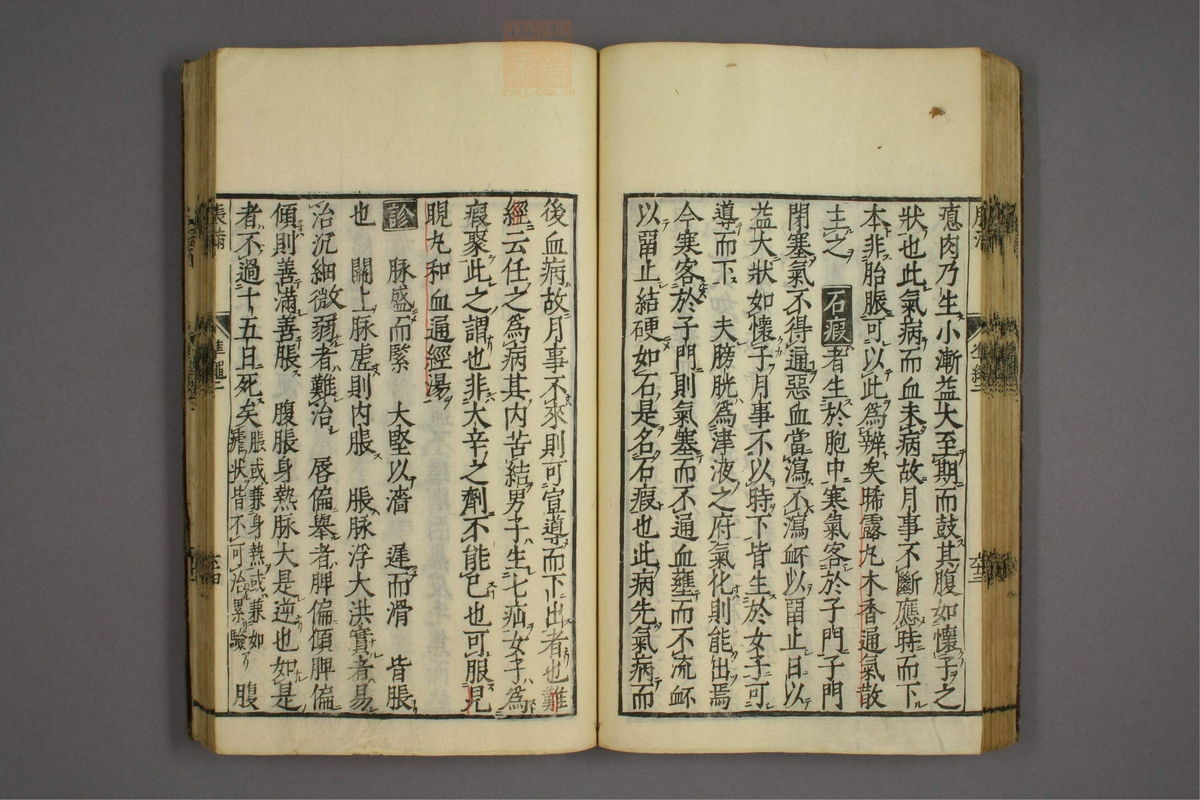 瘜肉乃生小漸益大至期而鼓其腹如懷子之
狀也此氣病而血未病故月事不斷應時而下
本非胎脤可以此爲辨矣晞露丸木香通氣散
主之　石瘕者生於胞中寒氣客於子門子門
閉塞氣不得通惡血當瀉不瀉衃以留止日以
益大狀如懷子月事不以時下皆生於女子可
導而下　夫膀胱爲津液之府氣化則能出焉
今寒客於子門則氣塞而不通血壅而不流衃
以留止結硬如石是名石瘕也此病先氣病而
後血病故月事不來則可宣導而下出者也難
經云任之爲病其内苦結男子生七疝女子爲
瘕聚此之謂也非大辛之劑不能已也可服見
睍丸和血通經湯
診　脉盛而緊　大堅以濇　遲而滑　皆脹
也　關上脉虚則内脹　脹脉浮大洪實者易
治沉細微弱者難治　唇偏舉者脾偏傾脾偏
傾則善滿善脹　腹脹身熱脉大是逆也如是
者不過十五日死矣脹或兼身熱或兼如
瘧狀皆不可治累驗　腹
脹滿
準繩二